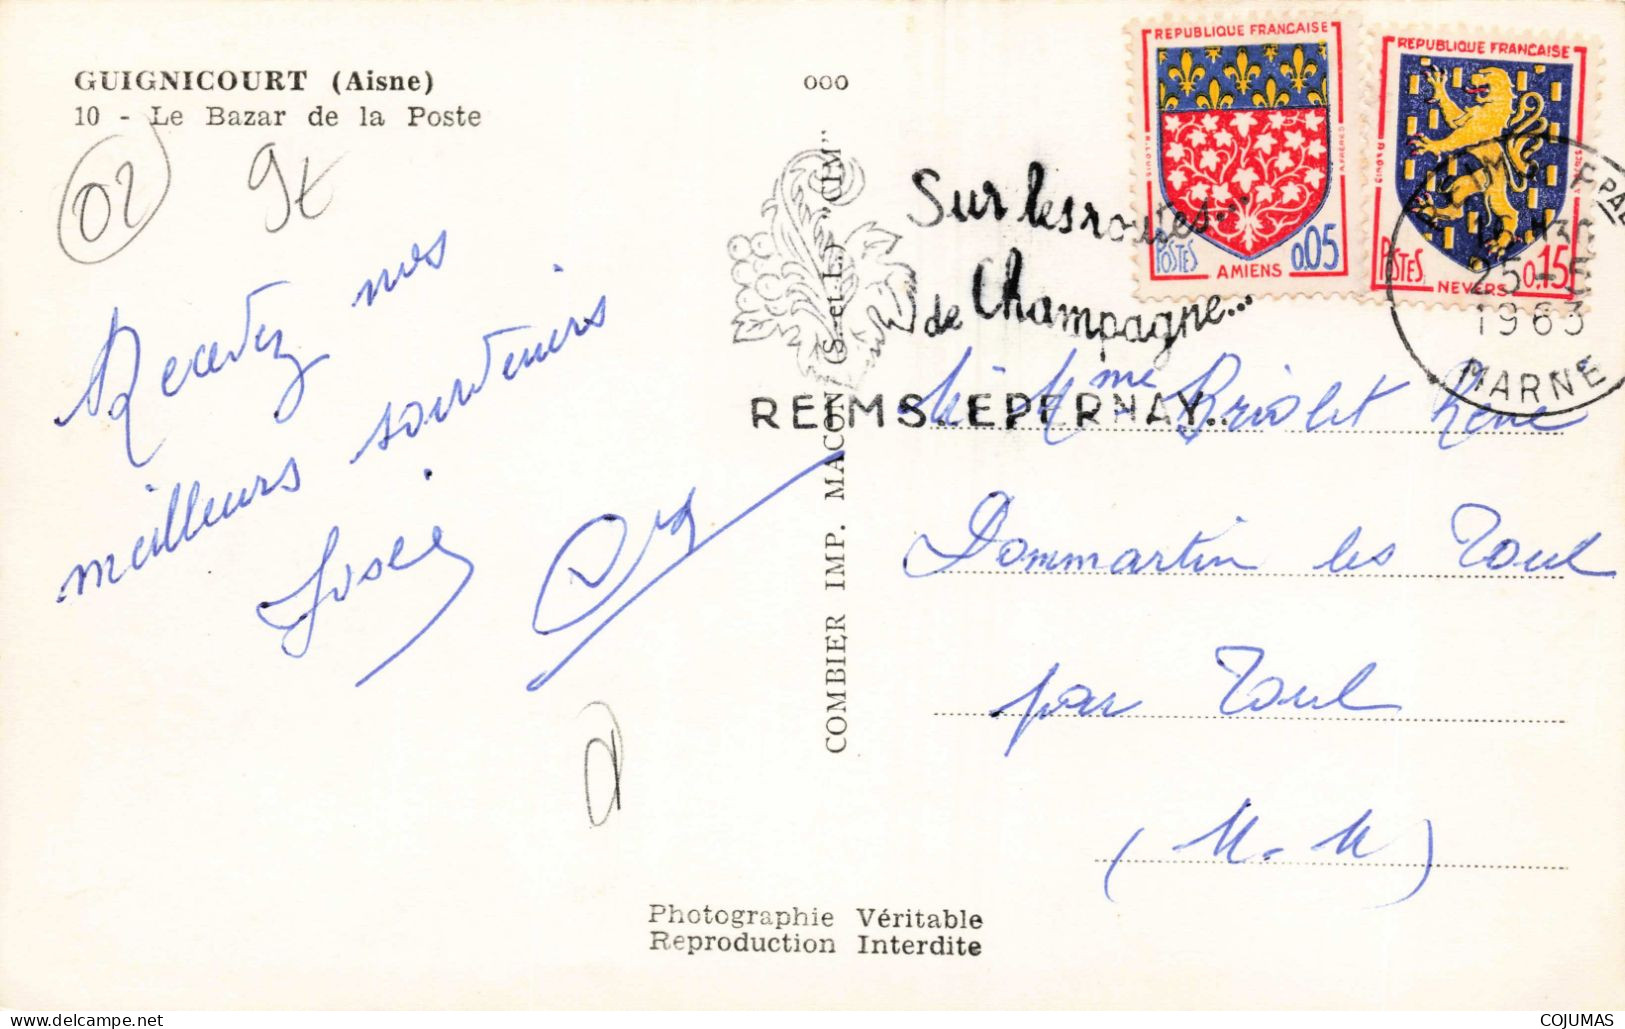 GUIGNICOURT (Aisne)
10 - Le Bazar de la Poste
02
9t
Recevez nos
meilleurs souvenirs
José
ooo
COMBIER IMP. MACON (S.-et-L.) "CIM"
Sur les routes...
de Champagne...
REIMS. EPERNAY..
REPUBLIQUE FRANÇAISE
POSTES
0.05
AMIENS
REPUBLIQUE FRANÇAISE
POSTES
0.15
NEVERS
REIMS
25-5
1963
MARNE
M. Mme Briolet René
Dommartin les Toul
par Toul
(M.M)
Photographie Véritable
Reproduction Interdite
delcampe.net
COJUMAS